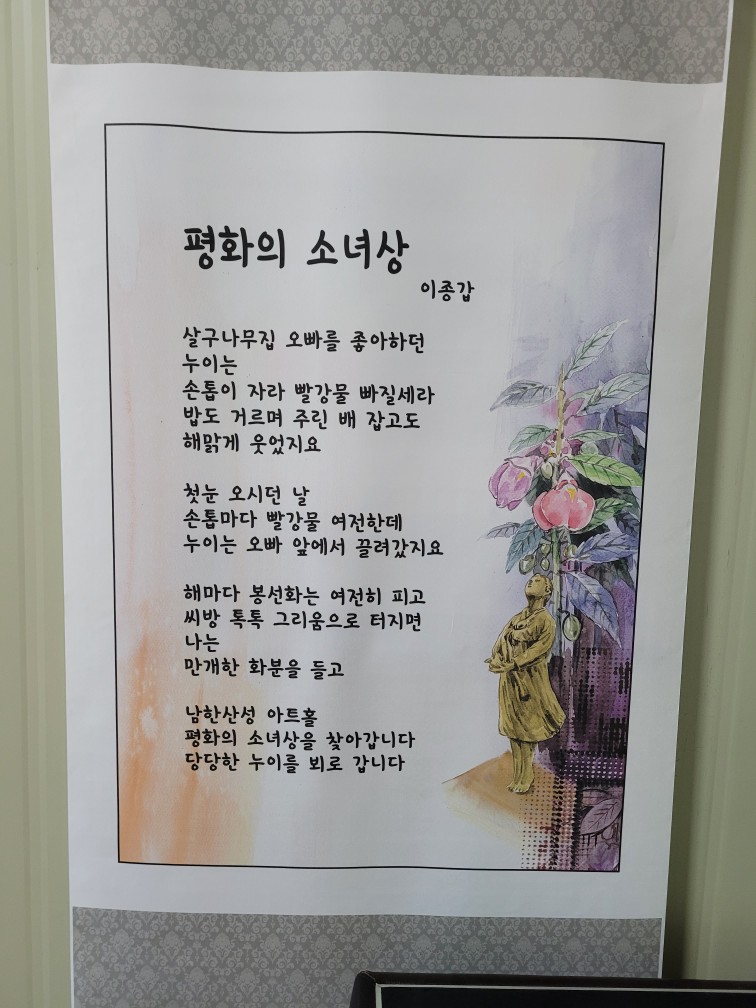 평화의 소녀상
이종갑
살구나무집 오빠를 좋아하던
누이는
손톱이 자라 빨강물 빠질세라
밥도 거르며 주린 배 잡고도
해맑게 웃었지요
첫눈 오시던 날
손톱마다 빨강물 여전한데
누이는 오빠 앞에서 끌려갔지요
해마다 봉선화는 여전히 피고
씨방 톡톡 그리움으로 터지면
나는
만개한 화분을 들고
남한산성 아트홀
평화의 소녀상을 찾아갑니다
당당한 누이를 뵈로 갑니다